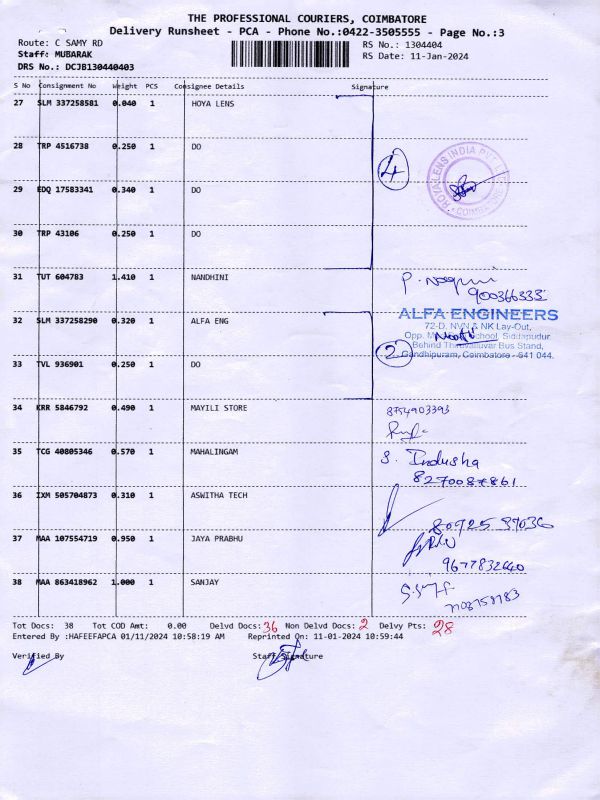 THE PROFESSIONAL COURIERS, COIMBATORE
Delivery Runsheet - PCA - Phone No.:0422-3505555 - Page No.:3
Route: C SAMY RD
RS No.: 1304404
Staff: MUBARAK
RS Date: 11-Jan-2024
DRS No.: DCJB130440403
S No Consignment No Weight PCS Consignee Details Signature
27 SLM 337258581 0.040 1 HOYA LENS
28 TRP 4516738 0.250 1 DO
4
HOYA LENS INDIA PVT. LTD.
COIMBATORE
29 EDQ 17583341 0.340 1 DO
30 TRP 43106 0.250 1 DO
31 TUT 604783 1.410 1 NANDHINI
900366333
32 SLM 337258290 0.320 1 ALFA ENG
ALFA ENGINEERS
72-D, NVN & NK Lay-Out,
Opp. School, Siddapudur
Behind Thiruvalluvar Bus Stand,
Gandhipuram, Coimbatore - 641 044.
2
33 TVL 936901 0.250 1 DO
34 KRR 5846792 0.490 1 MAYILI STORE
8754903393
35 TCG 40805346 0.570 1 MAHALINGAM
S. Indusha
8270087861
36 IXM 505704873 0.310 1 ASWITHA TECH
80925 37036
37 MAA 107554719 0.950 1 JAYA PRABHU
9677832440
38 MAA 863418962 1.000 1 SANJAY
Tot Docs: 38 Tot COD Amt: 0.00 Delvd Docs: 36 Non Delvd Docs: 2 Delvy Pts: 28
Entered By :HAFEEFAPCA 01/11/2024 10:58:19 AM Reprinted On: 11-01-2024 10:59:44
Verified By Staff Signature